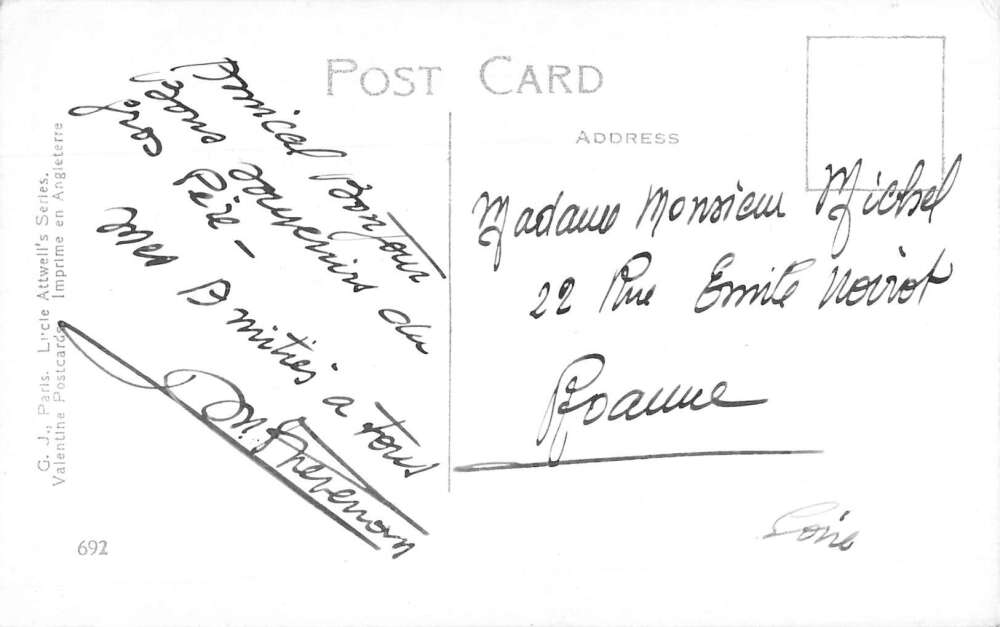 POST CARD
ADDRESS
Amical Bonjour
Bons souvenirs du
gros Père -
mes Amitiés à tous
Madame Monsieur Michel
22 Rue Emile Noirot
Roanne
Loire
G. J., Paris. Lucie Attwell's Series.
Valentine Postcards Imprime en Angleterre
692